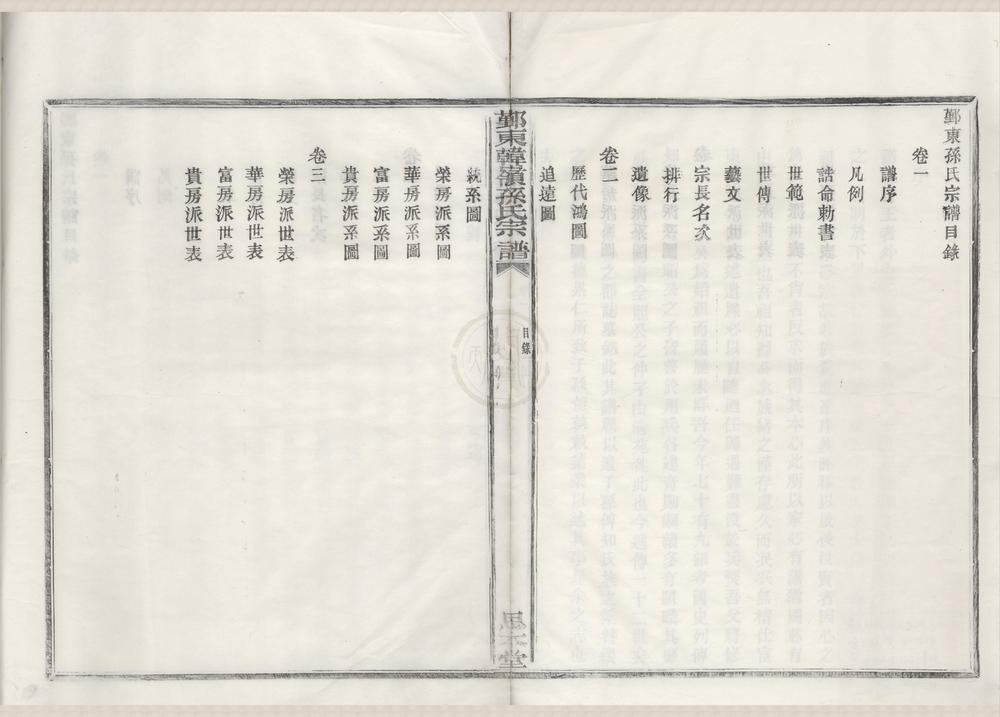 鄞東孫氏宗譜目錄
卷一
譜序
凡例
誥命勅書
世範
世傳
藝文
宗長名次
排行
遺像
卷二
歷代鴻圖
追遠圖
鄞東韓嶺孫氏宗譜
目錄
思本堂
統系圖
榮房派系圖
華房派系圖
富房派系圖
貴房派系圖
卷三
榮房派世表
華房派世表
富房派世表
貴房派世表